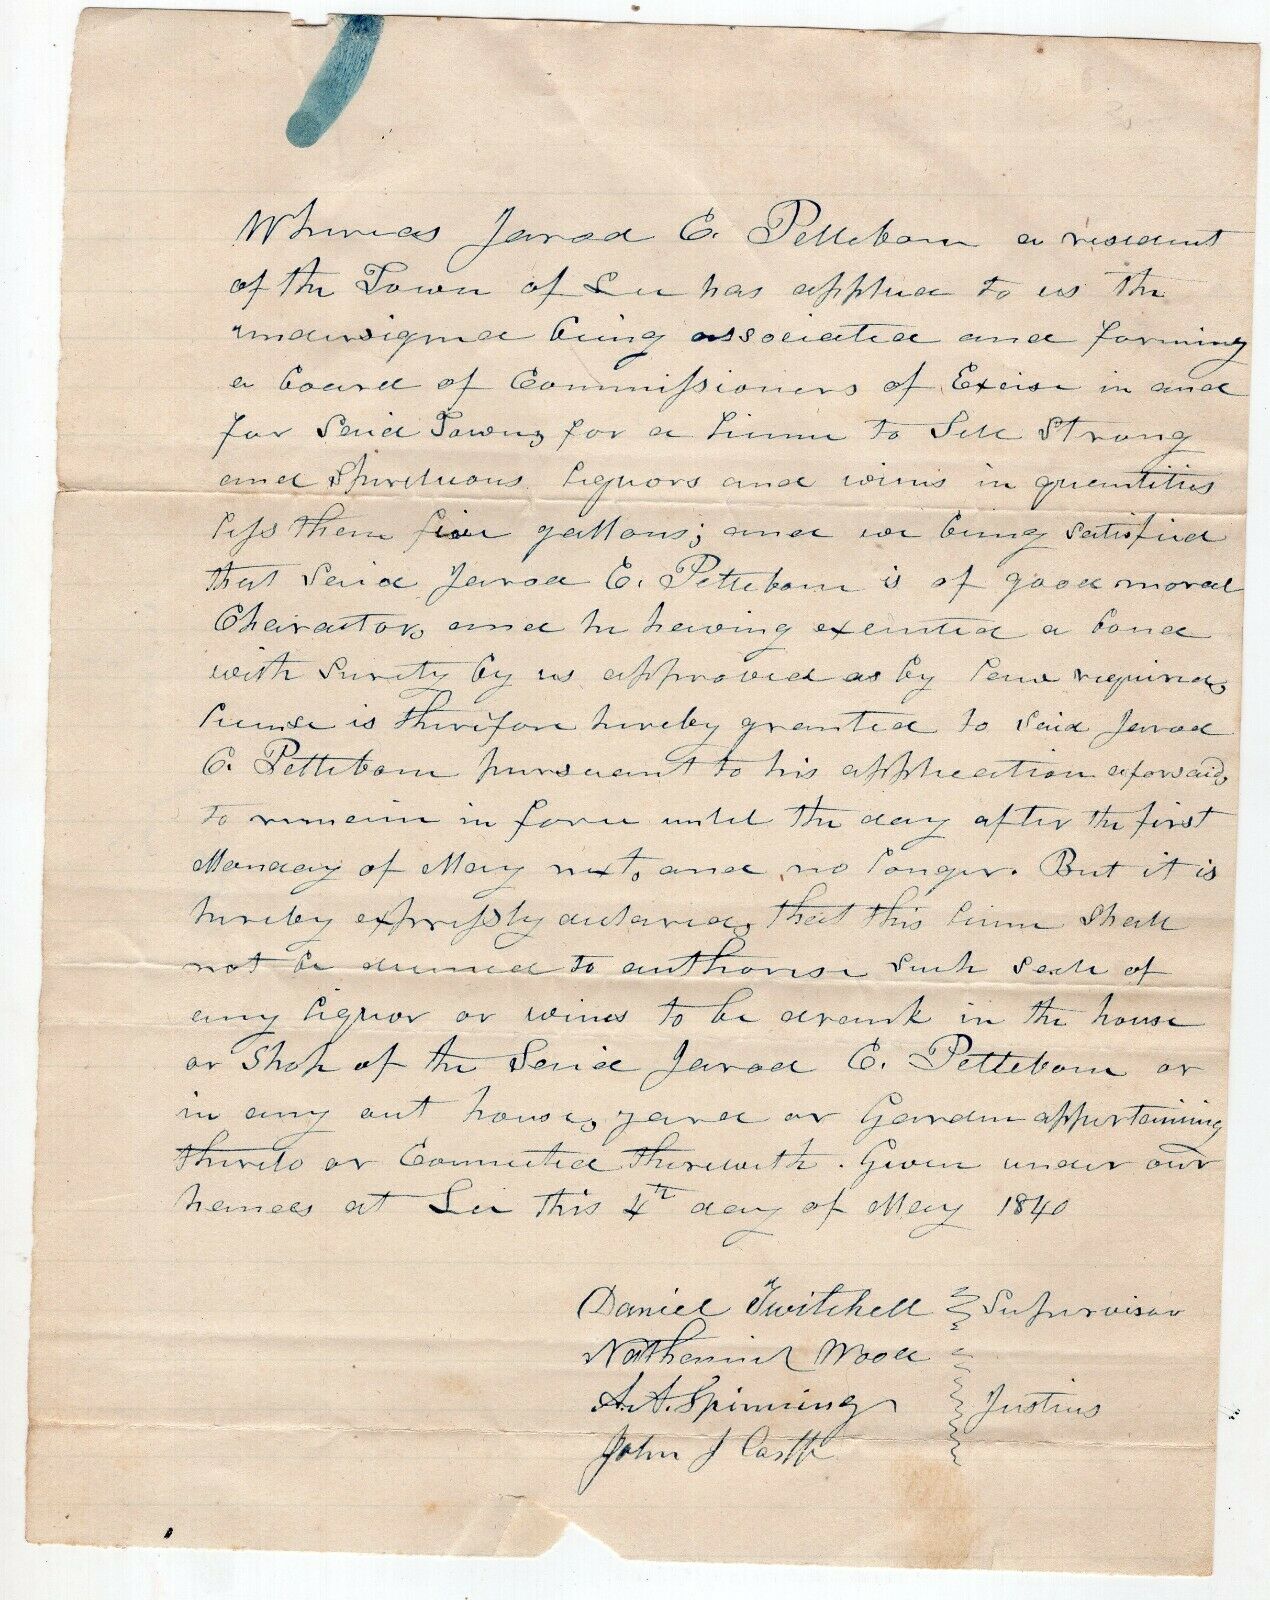 Whereas Jarod E. Pettebone a resident
of the Town of Lee has applied to us the
undersigned being associated and forming
a board of Commissioners of Excise in and
for Said Town, for a license to Sell Strong
and Spirituous liquors and wines in quantities
less than five gallons; and we being satisfied
that Said Jarod E. Pettebone is of good moral
Charactor, and he having executed a bond
with Surety by us approved as by law required,
license is therefore hereby granted to Said Jarod
E. Pettebone pursuant to his application aforsaid,
to remain in force until the day after the first
Monday of May next, and no longer. But it is
hereby expressly declared, that this license shall
not be deemed to authorise such sale of
any liquor or wines to be drank in the house
or Shop of the Said Jarod E. Pettebone or
in any out house, yard or Garden appertaining
thereto or Connected therewith. Given under our
hands at Lee this 4th day of May 1840
Daniel Twitchell Supervisor
Nathaniel Wood
A. A. Spinning Justices
John J Castle